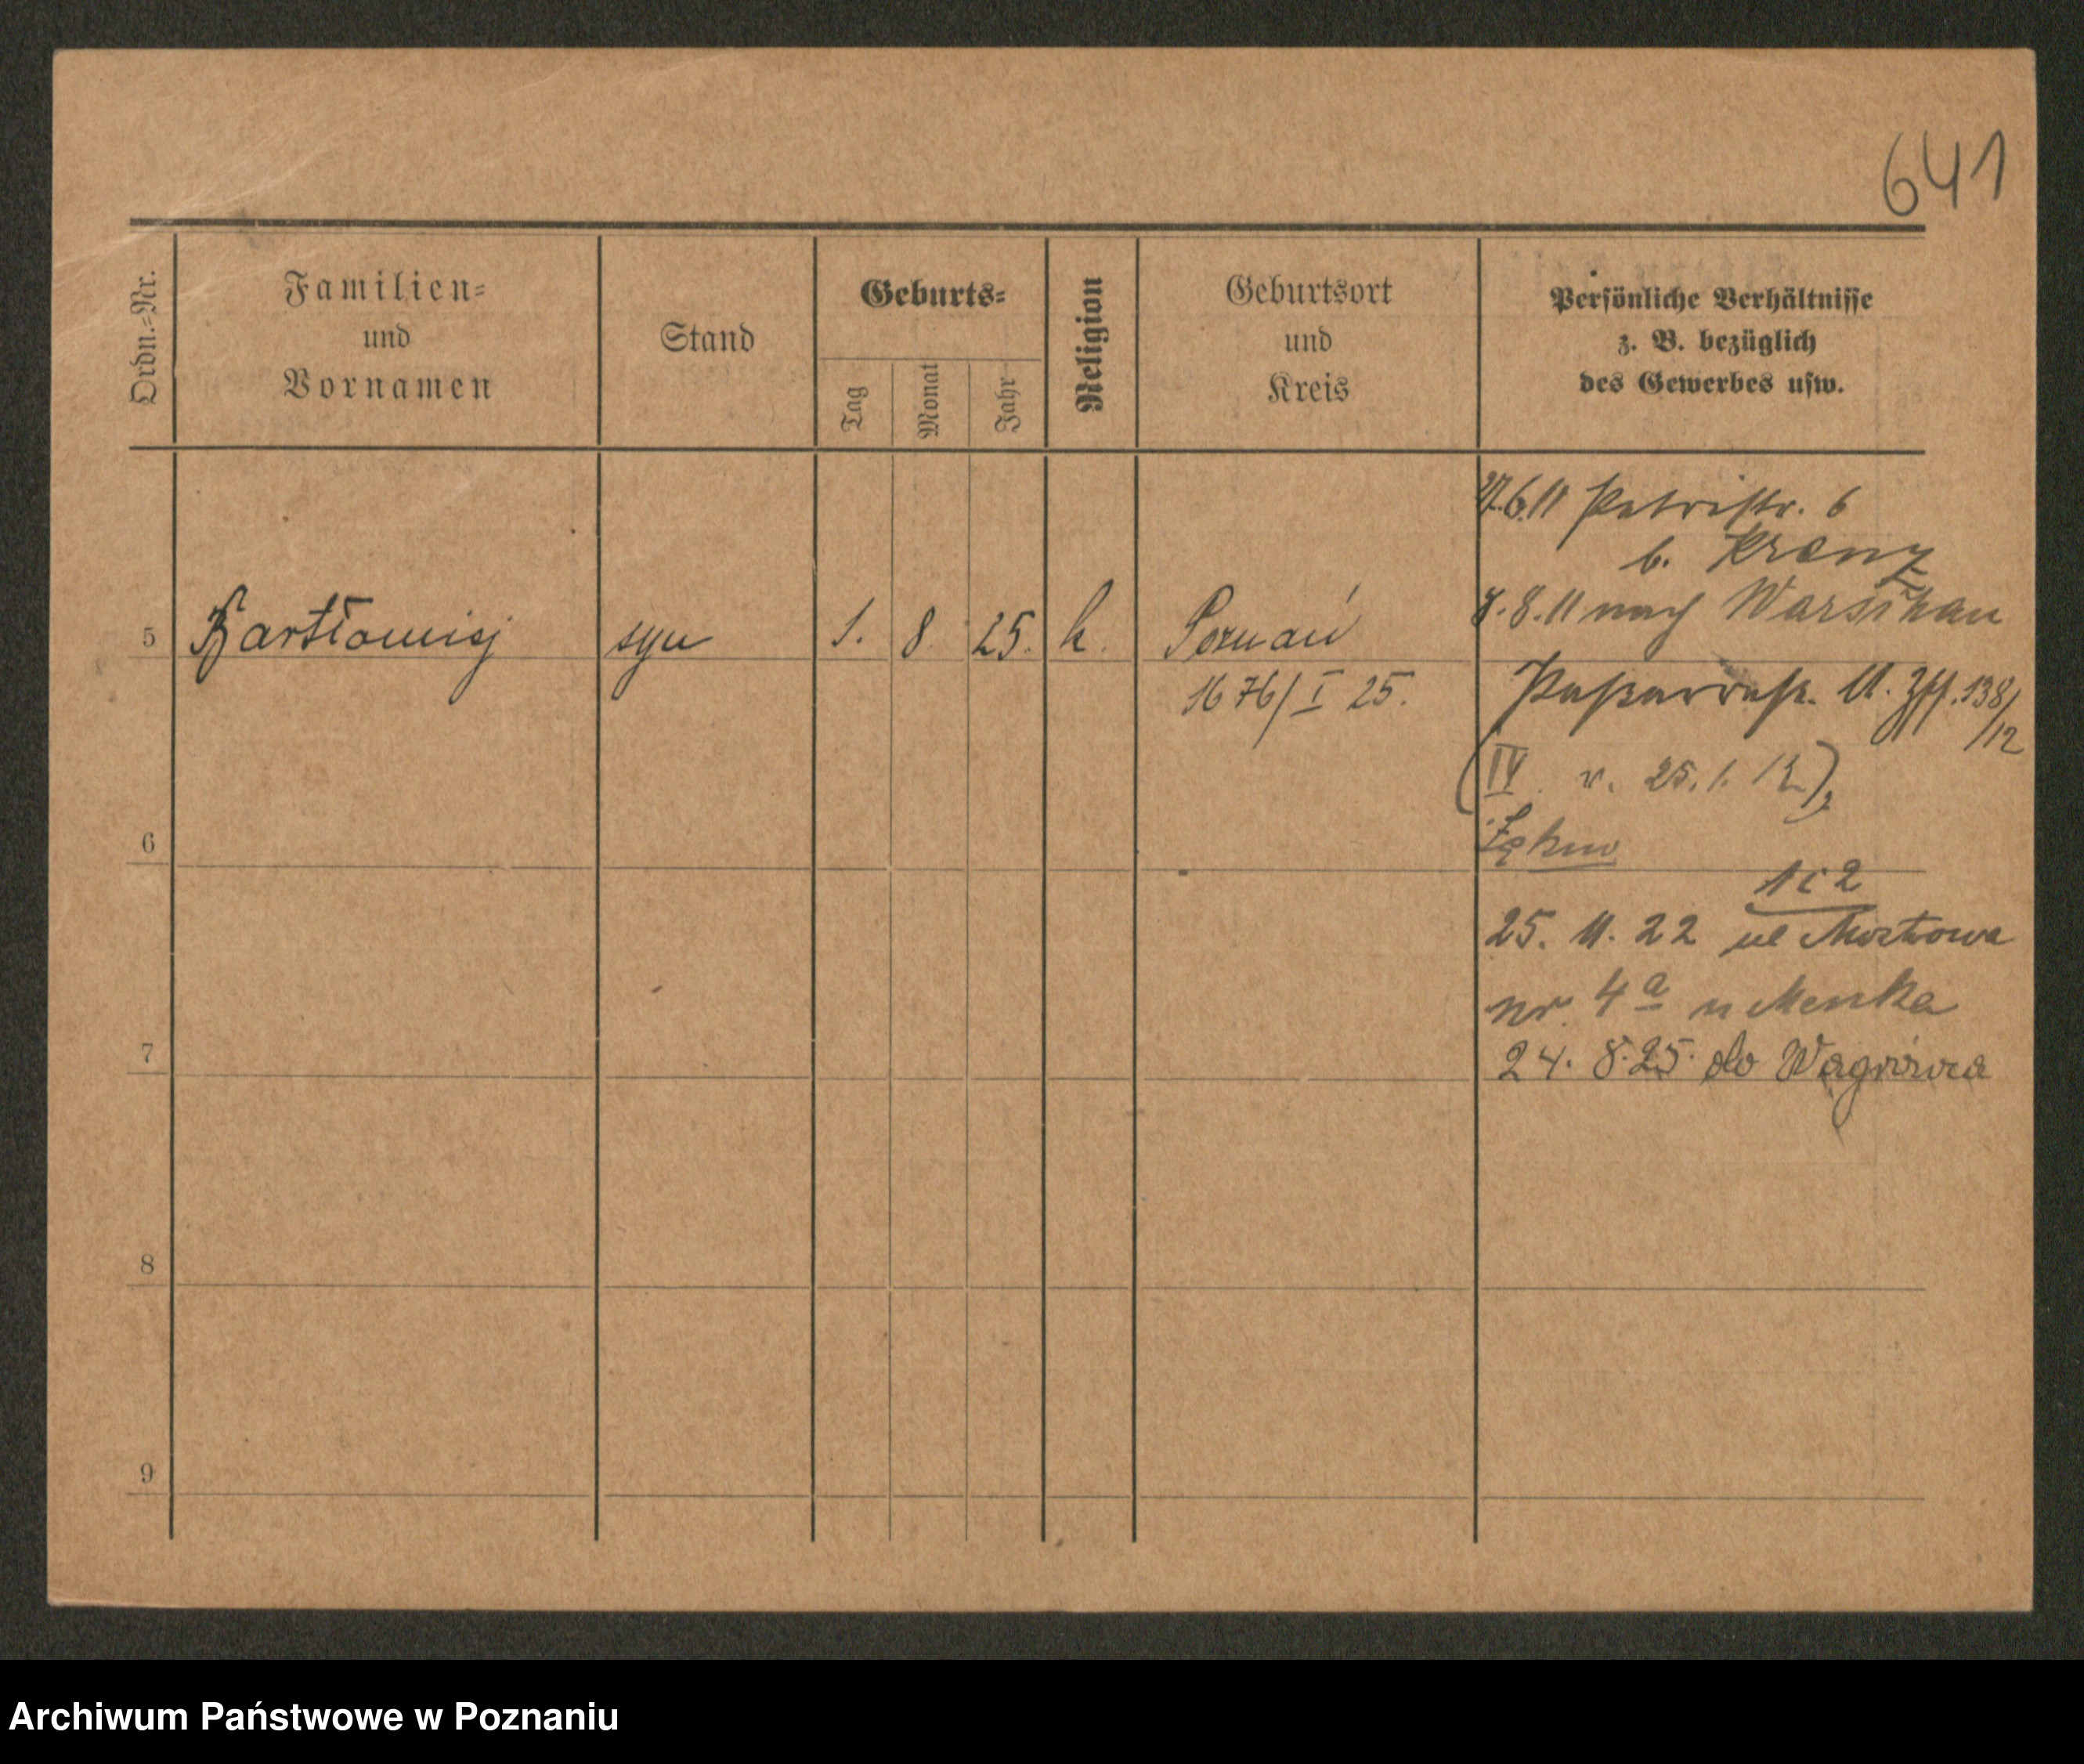 641
Ordn.-Nr.
Familien-
und
Vornamen
Stand
Geburts-
Tag
Monat
Jahr
Religion
Geburtsort
und
Kreis
Persönliche Verhältnisse
z. B. bezüglich
des Gewerbes usw.
27.6.11 Petristr. 6
b. Krenz
8.8.11 nach Warschau
5 Bartłomiej syn 1. 8. 25. k. Poznań
1676/I 25.
11. 138/12
(IV v. 25.1.12)
6
1 i 2
25. 11. 22 ul Mostowa
nr. 4a u Menka
7
24. 8. 25. do Wągrówca
8
9
Archiwum Państwowe w Poznaniu